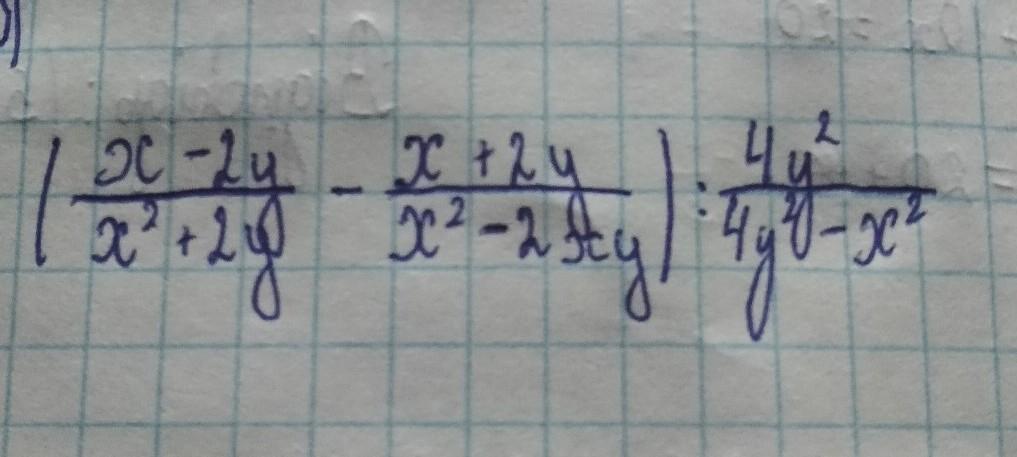 ( x - 2y / x² + 2y - x + 2y / x² - 2xy ) : 4y² / 4y² - x²